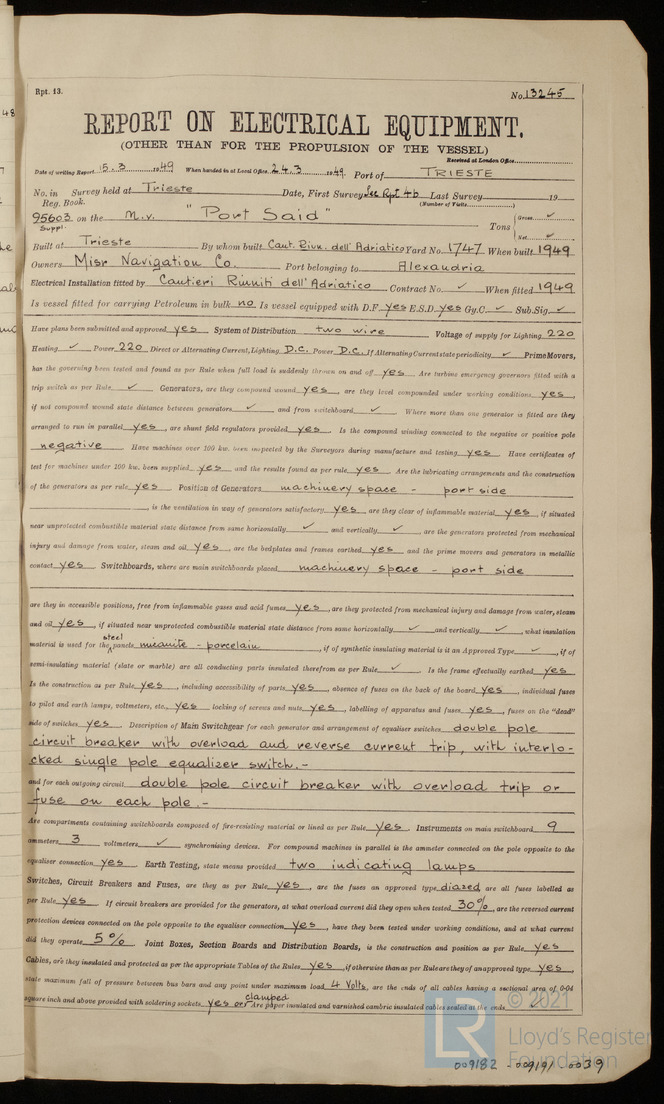 Rpt. 13.
No. 13245
REPORT ON ELECTRICAL EQUIPMENT.
(OTHER THAN FOR THE PROPULSION OF THE VESSEL)
Received at London Office
Date of writing Report 15.3 1949 When handed in at Local Office 24.3. 1949 Port of TRIESTE
No. in Survey held at Trieste Date, First Survey See Rpt 4b Last Survey 19
Reg. Book. (Number of Visits)
95603 on the M.V. "Port Said" Tons Gross ✓
Suppl. Net ✓
Built at Trieste By whom built Cant. Riun. dell' Adriatico Yard No. 1747 When built 1949
Owners Misr Navigation Co. Port belonging to Alexandria
Electrical Installation fitted by Cantieri Riuniti dell' Adriatico Contract No. ✓ When fitted 1949
Is vessel fitted for carrying Petroleum in bulk no Is vessel equipped with D.F. yes E.S.D. yes Gy.C. ✓ Sub.Sig. ✓
Have plans been submitted and approved yes System of Distribution two wire Voltage of supply for Lighting 220
Heating ✓ Power 220 Direct or Alternating Current, Lighting D.C. Power D.C. If Alternating Current state periodicity ✓ Prime Movers,
has the governing been tested and found as per Rule when full load is suddenly thrown on and off yes Are turbine emergency governors fitted with a
trip switch as per Rule ✓ Generators, are they compound wound yes, are they level compounded under working conditions yes,
if not compound wound state distance between generators ✓ and from switchboard ✓ Where more than one generator is fitted are they
arranged to run in parallel yes, are shunt field regulators provided yes Is the compound winding connected to the negative or positive pole
negative Have machines over 100 kw. been inspected by the Surveyors during manufacture and testing yes Have certificates of
test for machines under 100 kw. been supplied yes and the results found as per rule yes Are the lubricating arrangements and the construction
of the generators as per rule yes Position of Generators machinery space - port side
, is the ventilation in way of generators satisfactory yes are they clear of inflammable material yes, if situated
near unprotected combustible material state distance from same horizontally ✓ and vertically ✓, are the generators protected from mechanical
injury and damage from water, steam and oil yes, are the bedplates and frames earthed yes and the prime movers and generators in metallic
contact yes Switchboards, where are main switchboards placed machinery space - port side
are they in accessible positions, free from inflammable gases and acid fumes yes, are they protected from mechanical injury and damage from water, steam
and oil yes, if situated near unprotected combustible material state distance from same horizontally ✓ and vertically ✓, what insulation
material is used for the steel panels micanite - porcelain, if of synthetic insulating material is it an Approved Type ✓, if of
semi-insulating material (slate or marble) are all conducting parts insulated therefrom as per Rule ✓ Is the frame effectually earthed yes
Is the construction as per Rule yes, including accessibility of parts yes, absence of fuses on the back of the board yes, individual fuses
to pilot and earth lamps, voltmeters, etc., yes locking of screws and nuts yes, labelling of apparatus and fuses yes, fuses on the "dead"
side of switches yes Description of Main Switchgear for each generator and arrangement of equaliser switches double pole
circuit breaker with overload and reverse current trip, with interlo-
cked single pole equalizer switch.-
and for each outgoing circuit double pole circuit breaker with overload trip or
fuse on each pole.-
Are compartments containing switchboards composed of fire-resisting material or lined as per Rule yes Instruments on main switchboard 9
ammeters 3 voltmeters ✓ synchronising devices. For compound machines in parallel is the ammeter connected on the pole opposite to the
equaliser connection yes Earth Testing, state means provided two indicating lamps
Switches, Circuit Breakers and Fuses, are they as per Rule yes, are the fuses an approved type diazed are all fuses labelled as
per Rule yes If circuit breakers are provided for the generators, at what overload current did they open when tested 30%, are the reversed current
protection devices connected on the pole opposite to the equaliser connection yes, have they been tested under working conditions, and at what current
did they operate 5% Joint Boxes, Section Boards and Distribution Boards, is the construction and position as per Rule yes
Cables, are they insulated and protected as per the appropriate Tables of the Rules yes, if otherwise than as per Rule are they of an approved type yes,
state maximum fall of pressure between bus bars and any point under maximum load 4 Volts, are the ends of all cables having a sectional area of 0·04
square inch and above provided with soldering sockets yes or clamped Are paper insulated and varnished cambric insulated cables sealed at the ends
© 2021
LR
Lloyd's Register
Foundation
009182 - 009191 - 0039